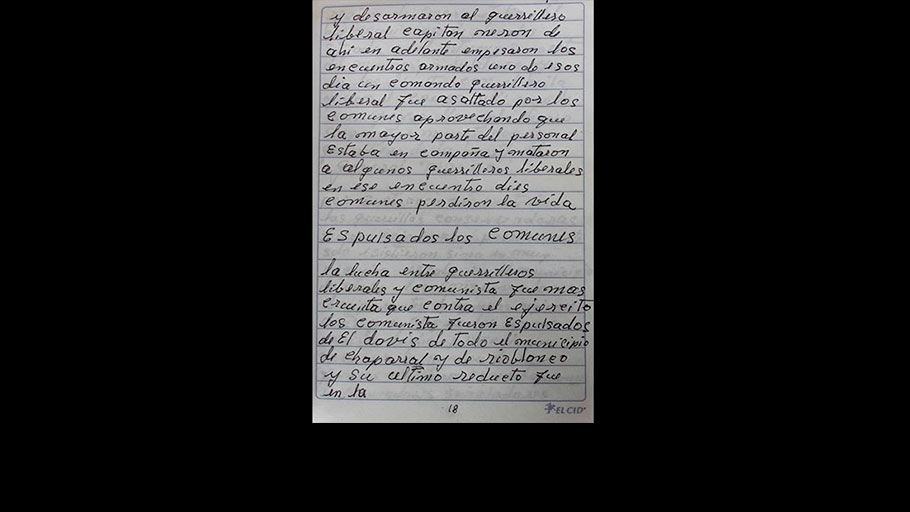 y desarmaron al guerrillero
liberal capitan neron de
ahi en adelante empesaron los
encuentros armados uno de esos
dia un comando guerrillero
liberal fue asaltado por los
comunes aprovechando que
la mayor parte del personal
Estaba en campaña y mataron
a algunos guerrilleros liberales
en ese encuentro dies
comunes perdiron la vida
ESpulsados los comunes
la lucha entre guerrilleros
liberales y comunista fue mas
cruenta que contra el ejercito
los comunista fueron Espulsados
de El davis de todo el municipio
de chaparral y de rioblanco
y su ultimo reducto fue
en la
18
ELCID